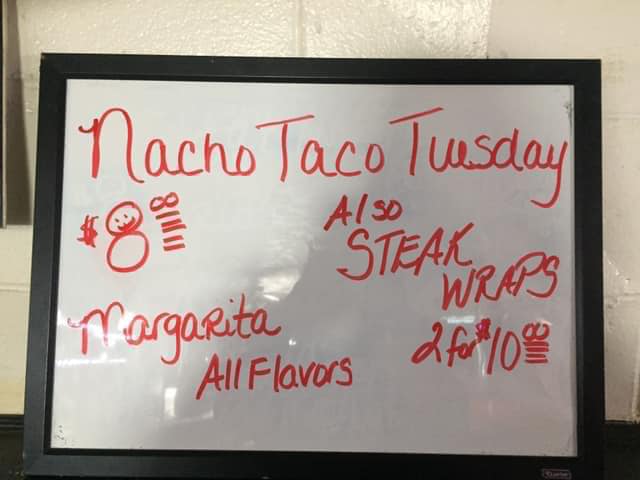 Nacho Taco Tuesday
$8 00
Also
STEAK
WRAPS
Margarita
All Flavors
2 for $10 00